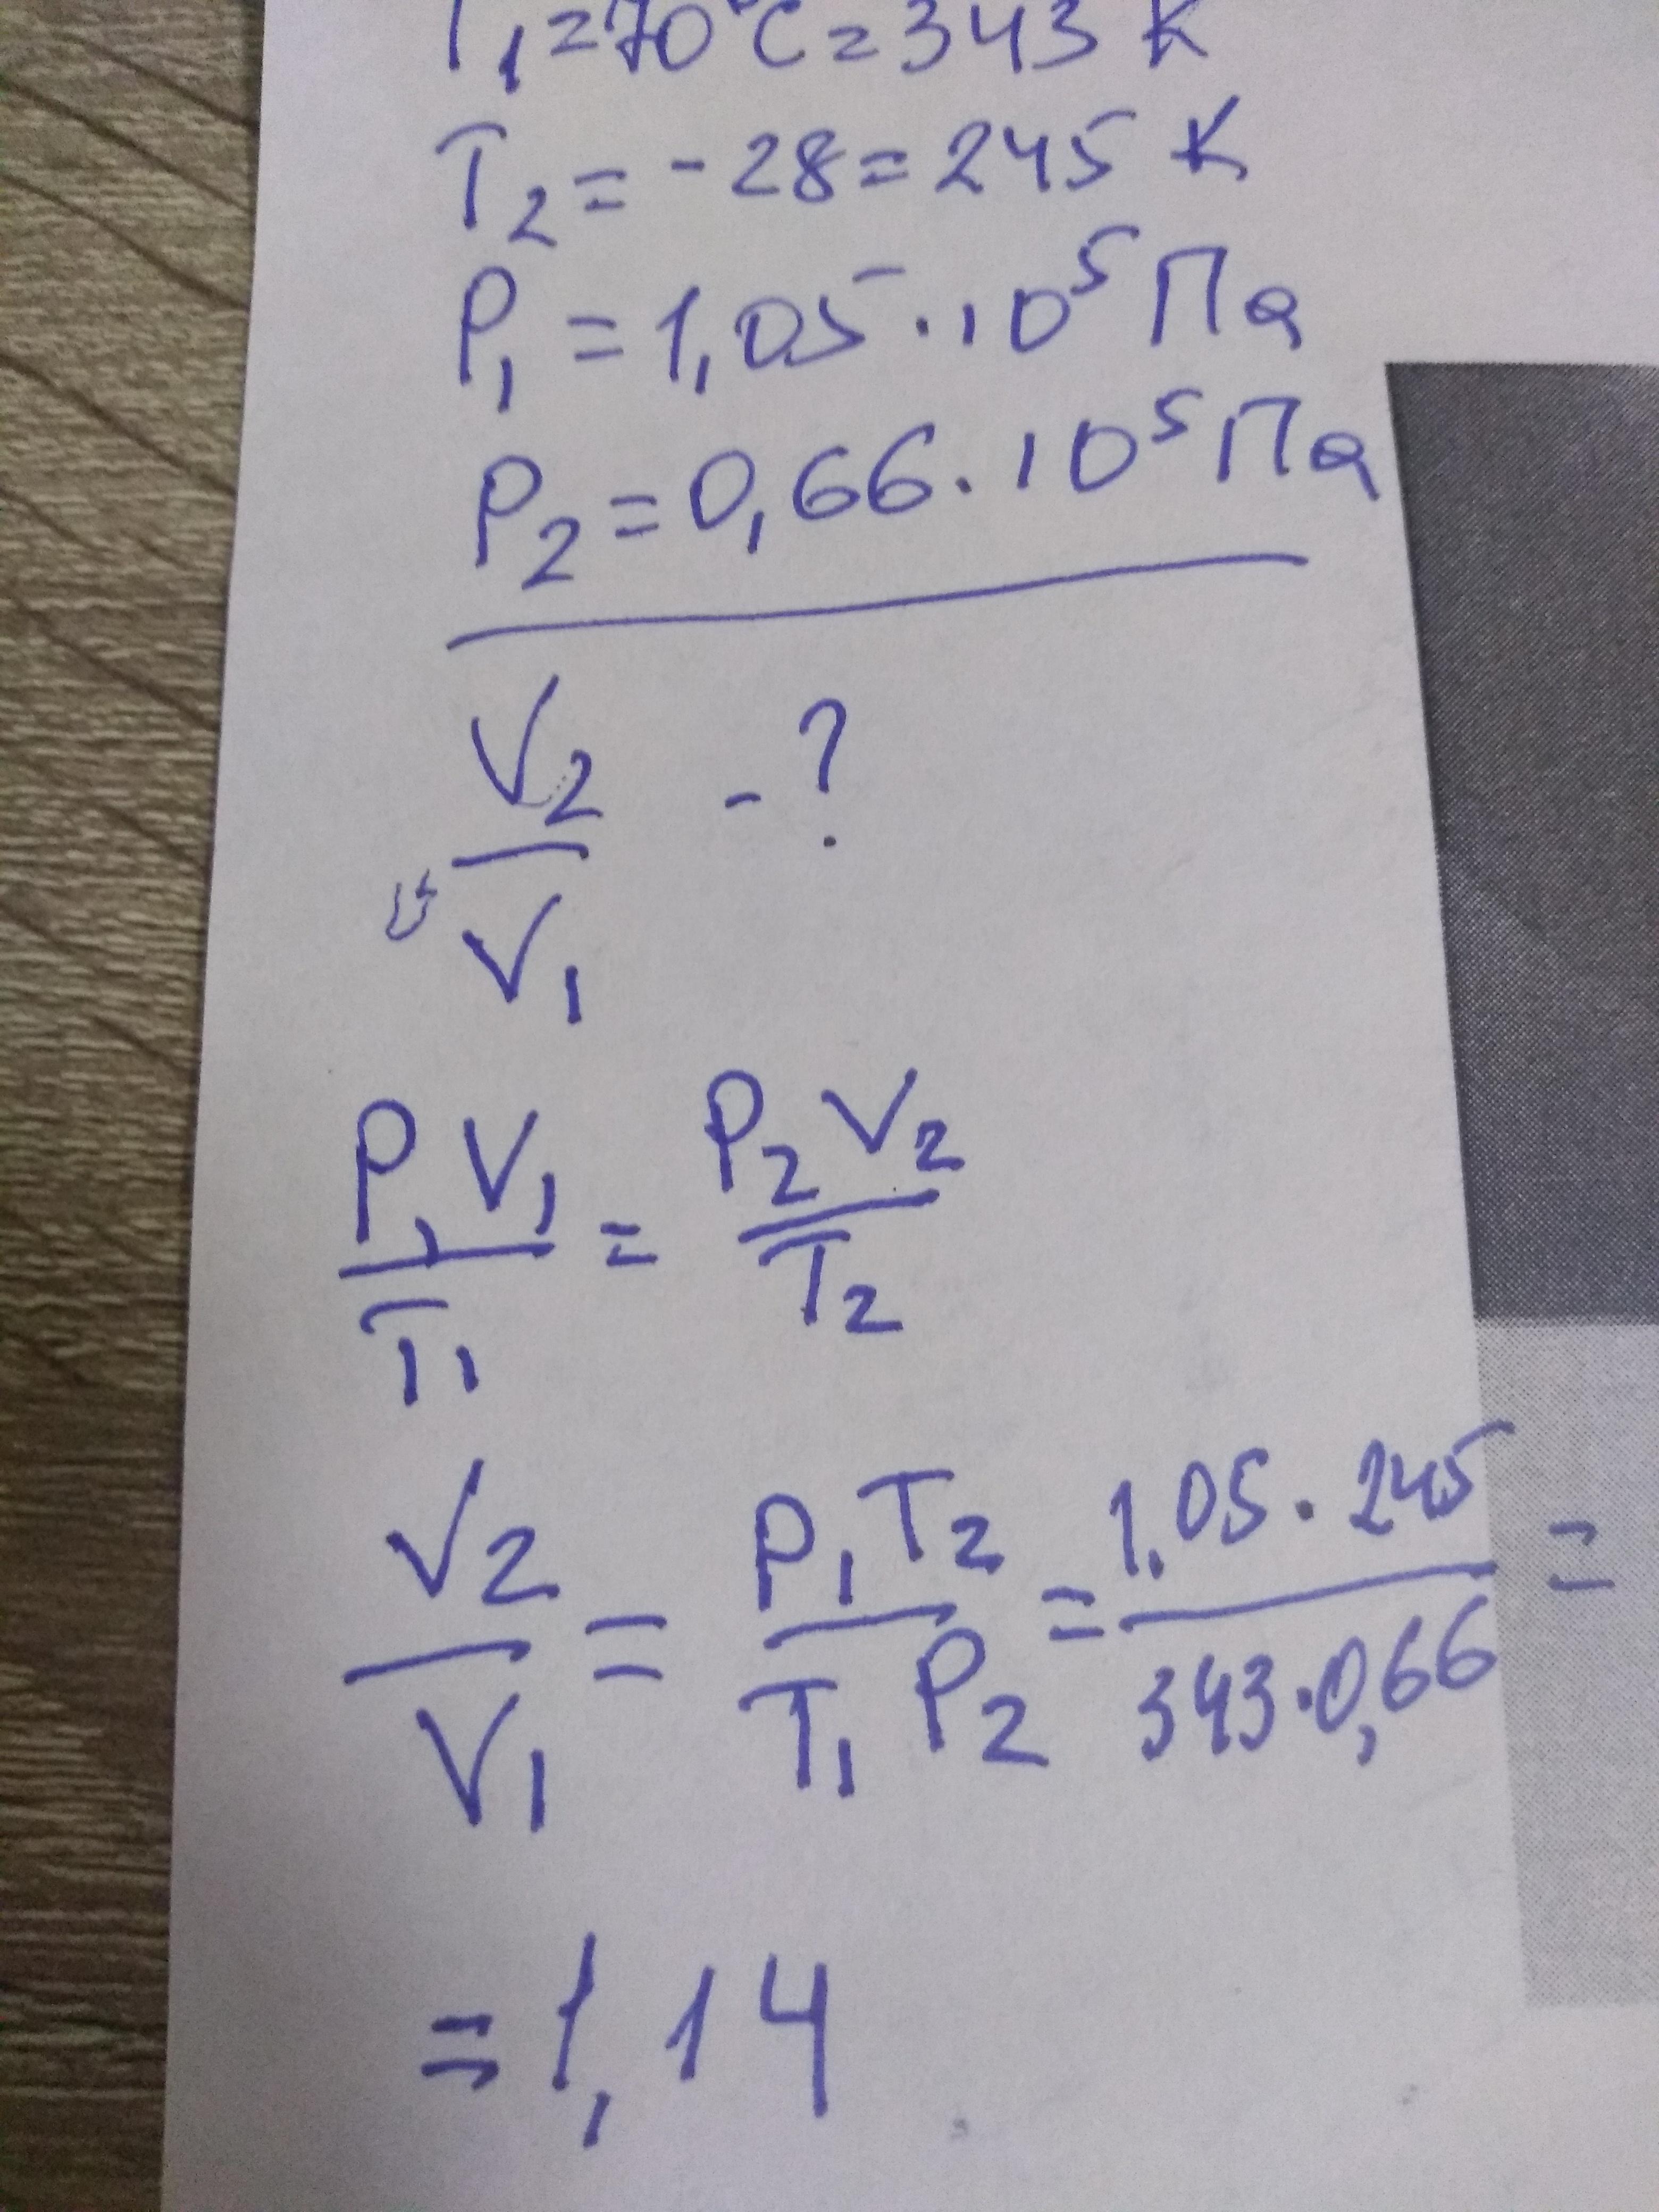 T₁=70°C=343 K
T₂=-28=245 K
P₁=1,05·10⁵ Па
P₂=0,66·10⁵ Па
V₂/V₁ -?
P₁V₁/T₁ = P₂V₂/T₂
V₂/V₁ = P₁T₂/T₁P₂ = 1,05·245/343·0,66 =
=1,14